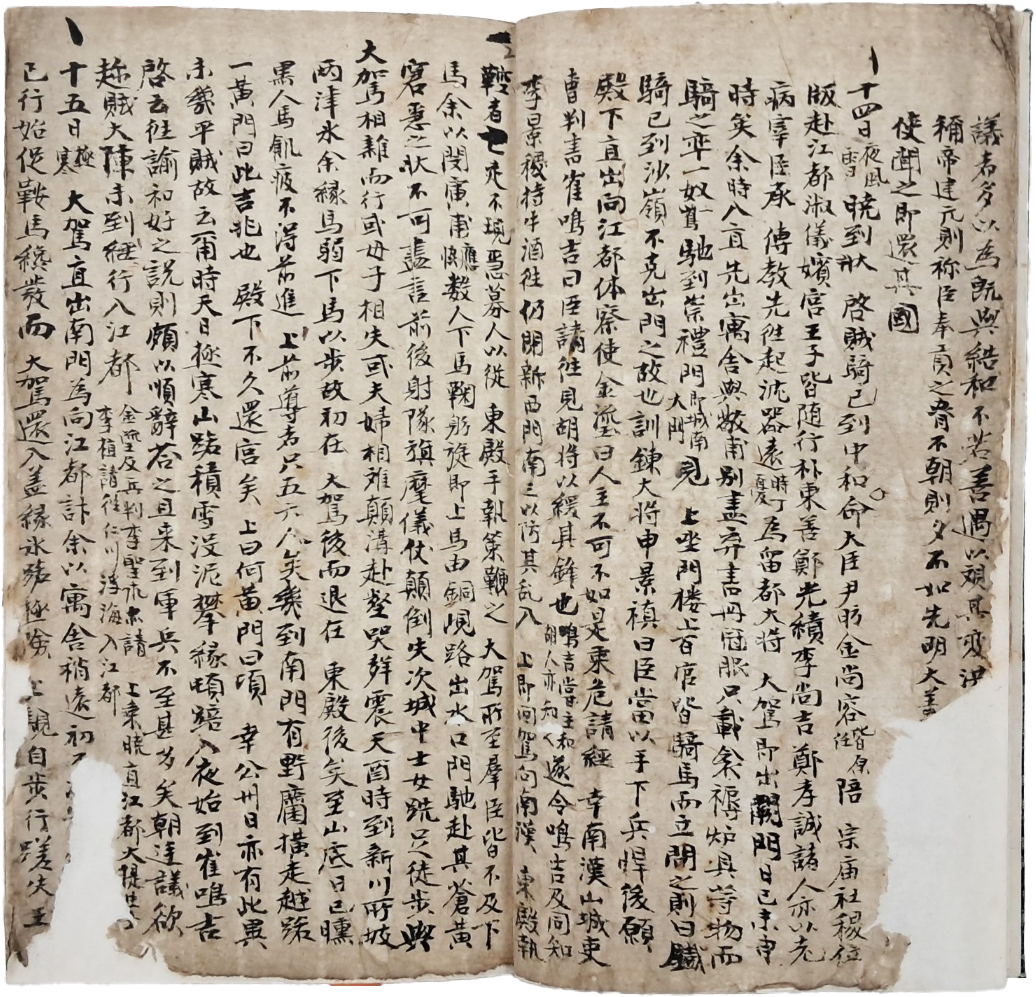 議者多以爲旣與結和不若善遇以觀其変洪
稱帝建元則称臣奉貢之脅不朝則夕不如先明大義
使聞之即還其國
十四日夜風雪曉到狀 啓賊騎已到中和命大臣尹昉金尚容皆原任陪 宗庙社稷位
版赴江都淑儀嬪宮王子皆随行朴東善鄭光績李尚吉鄭孝誠諸人亦以老
病宰臣承 傳教先徃起沈器遠時丁憂爲留都大將 大駕即出闕門日已未申
時矣余時入直先出寓舎與敬甫別盡弃書册冠服只載衾褥炉具等物而
騎之卒一奴鴐馳到崇禮門即城南大門見 上坐門楼上百官皆騎馬而立問之則曰鐵
騎已到沙嶺不克出門之故也訓鍊大將申景禛曰臣當以手下兵悍後願
殿下直出向江都体察使金瑬曰人主不可不如是乗危請經 幸南漢山城吏
曹判書崔鳴吉曰臣請徃見胡將以緩其鋒也鳴吉嘗主和胡人亦知人遂令鳴吉及同知
李景稷持牛酒徃仍閉新西門南三以防其乱入 上即回駕向南漢 東殿執
鞚者亡走不現急募人以從 東殿手執策鞭之 大駕所至羣臣皆不及下
馬余以閔廣甫應恢数人下馬鞠躬旋即上馬由銅峴路出水口門馳赴其蒼黄
窘急之状不可盡言前後射隊旗麾儀仗顛倒失次城中士女跣足徒步與
大駕相雜而行或母子相失或夫婦相难顛溝赴壑哭聲震天酉時到新川所坡
兩津氷余緣馬弱下馬以步故初在 大駕後而退在 東殿後矣至山底日已曛
黒人馬飢疲不得前進 上前導者只五六人矣幾到南門有野麕横走越路
一黄門曰此吉兆也 殿下不久還宮矣 上曰何黄門曰頃 幸公州日亦有此異
未幾平賊故云甬時天日極寒山路積雪没泥攀緣顿踣入夜始到崔鳴吉
啓云徃諭和好之説則頗以順辭荅之且来到軍兵不至甚多矣朝廷議欲
趂賊大陳未到經行入江都金瑬及兵判李聖求請 上乗曉直江都大提學李植請徃仁川浮海入江都
十五日極寒 大駕直出南門爲向江都計余以寓舎稍遠初不
已行始促鞍馬纔發而 大駕還入盖緣氷路極險 上親自步行蹉失王